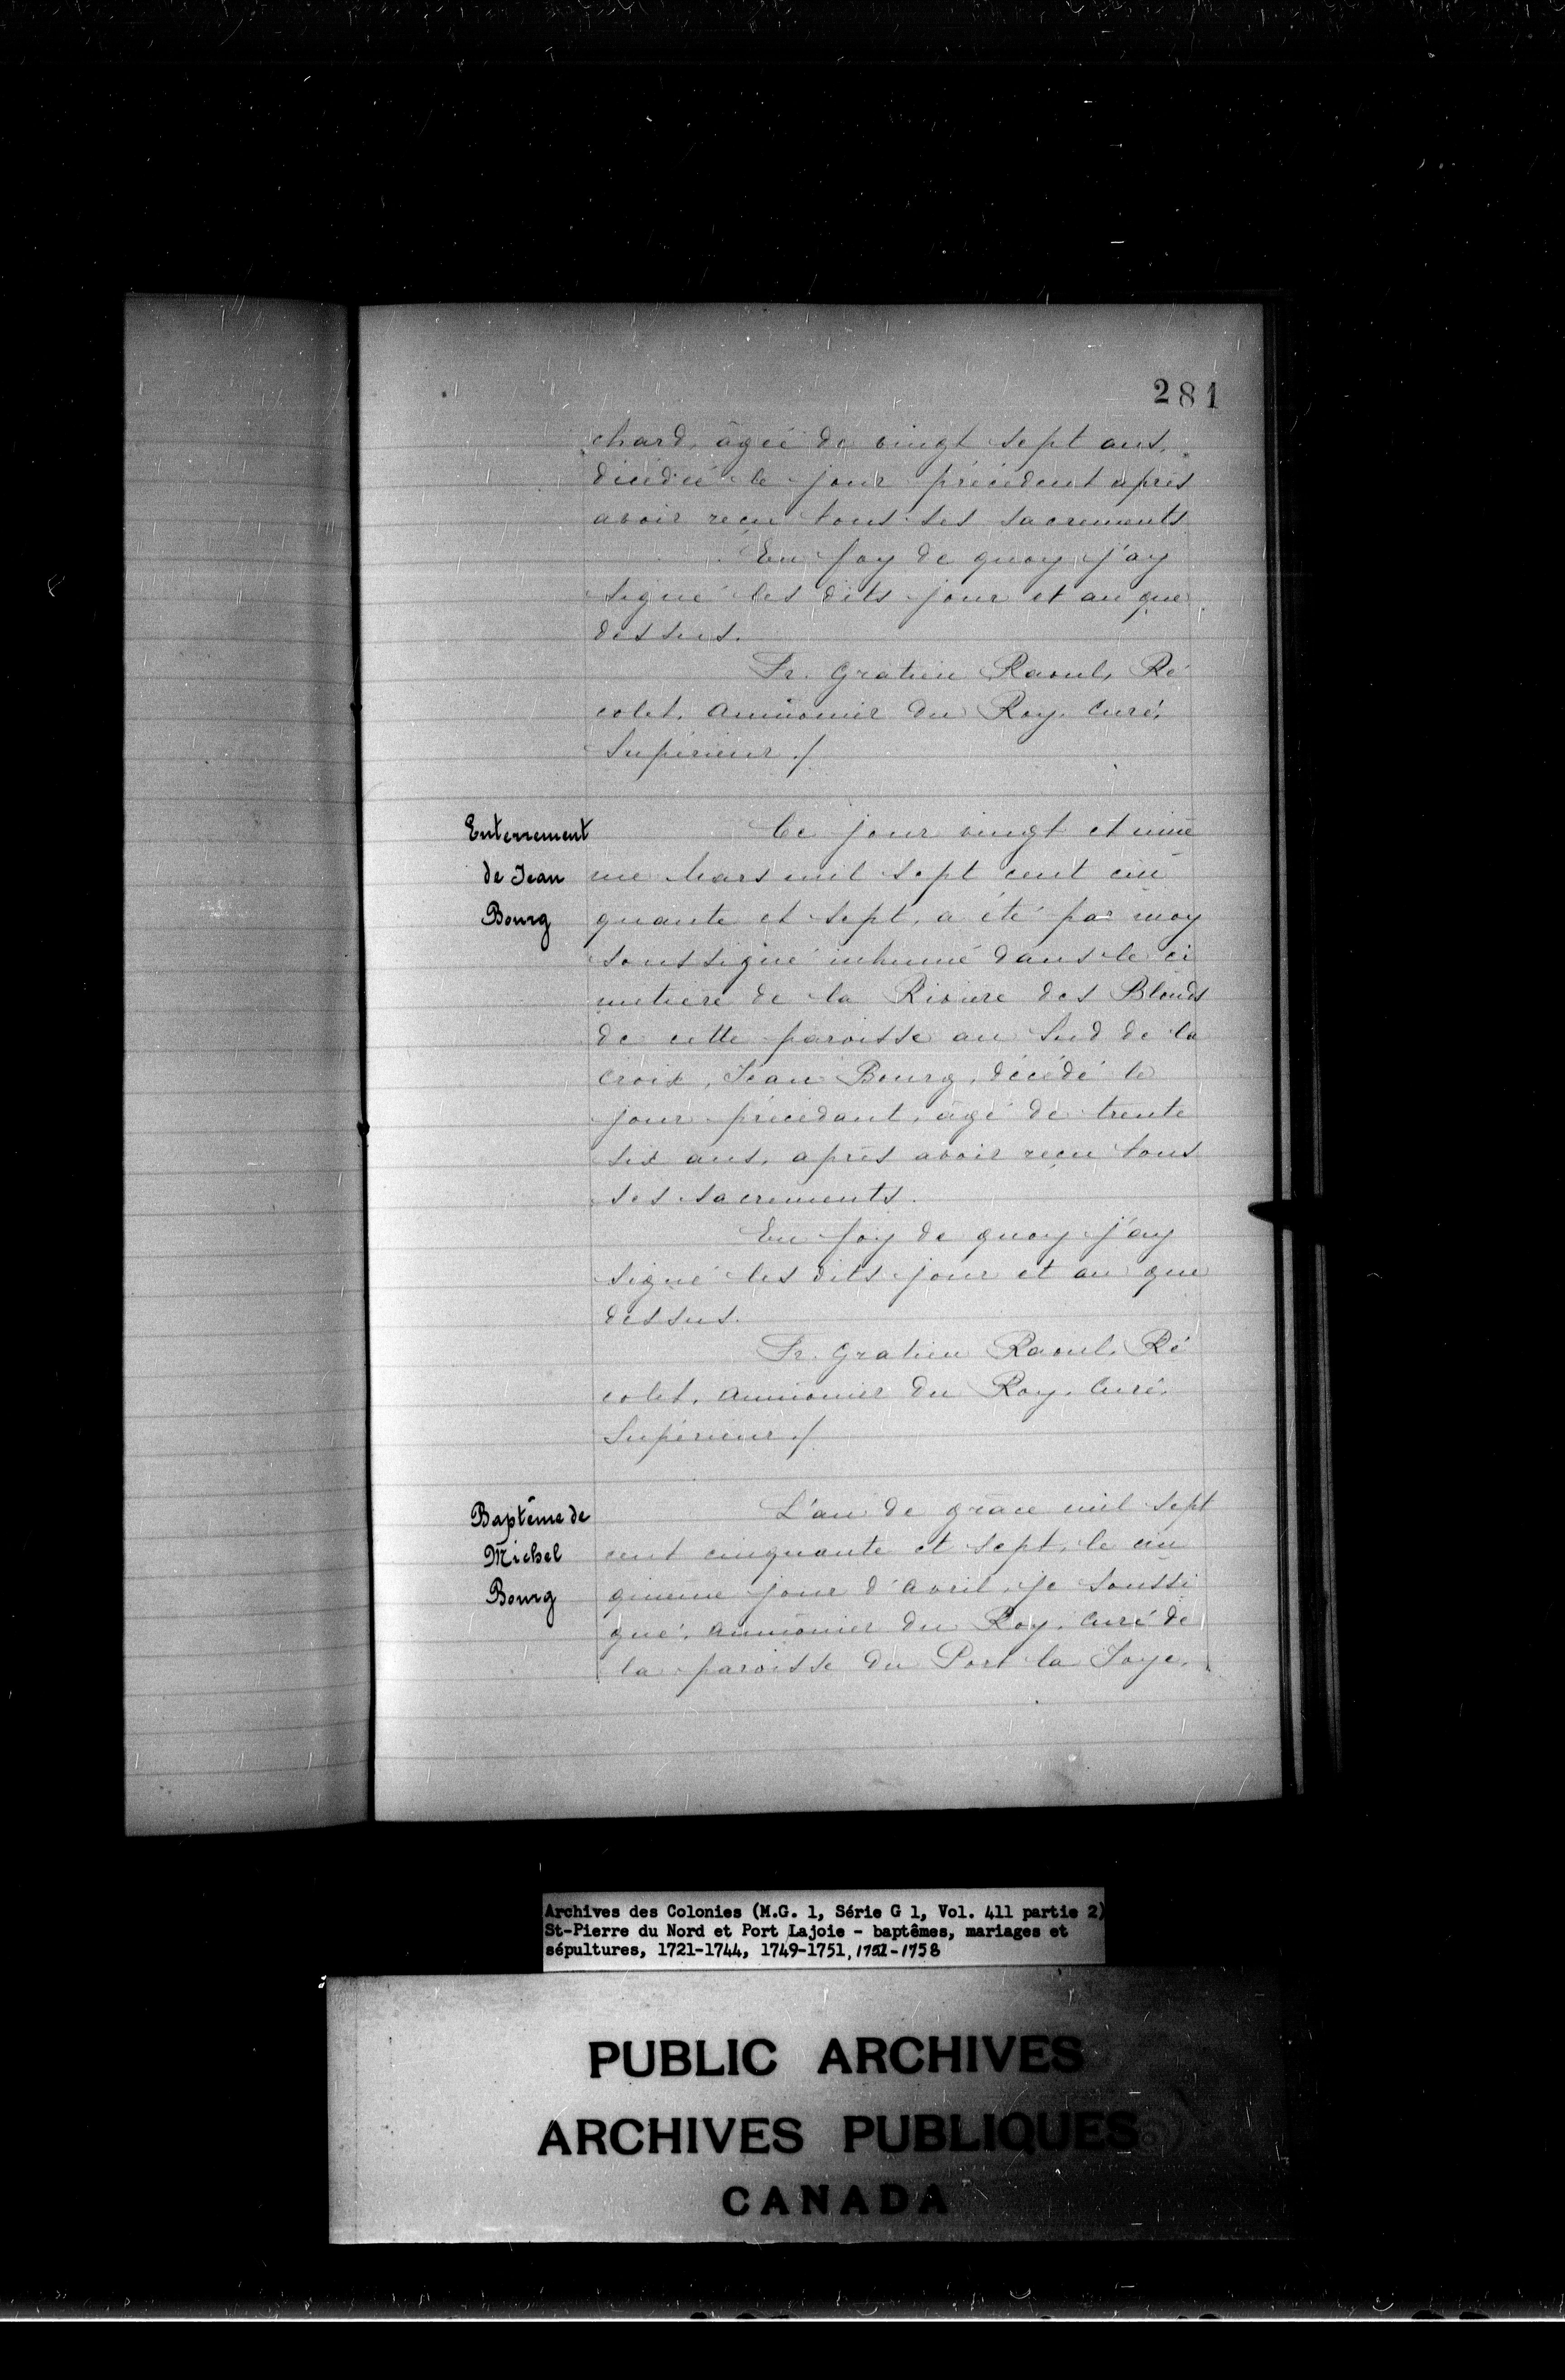 281
chard, âgée de vingt sept ans,
décédée le jour précédent après
avoir reçu tous ses sacrements
En foy de quoy j'ay
signé les dits jour et an que
dessus.
Fr. Gratien Raoul, Ré
colet, Aumônier du Roy, Curé,
Supérieur ./.
Enterrement
de Jean
Bourg
Ce jour vingt et uniè
me Mars mil sept cent cin
quante et sept, a été par moy
soussigné inhumé dans le ci
metière de la Rivière des Blonds
de cette paroisse au Sud de la
croix, Jean Bourg, décédé le
jour précédant, âgé de trente
six ans, après avoir reçu tous
ses sacrements.
En foy de quoy j'ay
signé les dits jour et an que
dessus.
Fr. Gratien Raoul, Ré
colet, Aumônier du Roy, Curé,
Supérieur ./.
Baptême de
Michel
Bourg
L'an de grâce mil sept
cent cinquante et sept, le cin
qième jour d'Avril, je soussi
gné, Aumônier du Roy, Curé de
la paroisse du Port la Joye,
Archives des Colonies (M.G. 1, Série G 1, Vol. 411 partie 2)
St-Pierre du Nord et Port Lajoie - baptêmes, mariages et
sépultures, 1721-1744, 1749-1751, 1751-1758
PUBLIC ARCHIVES
ARCHIVES PUBLIQUES
CANADA